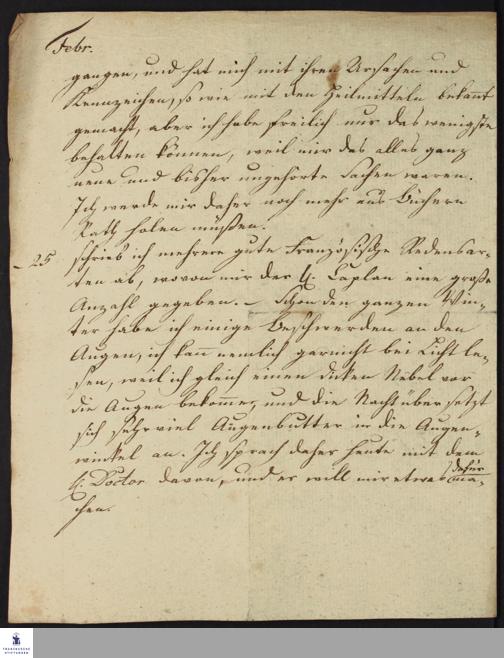 Febr.
gangen, und hat mich mit ihren Ursachen und
Kennzeichen, so wie mit den Heilmitteln bekannt
gemacht, aber ich habe freilich nur das wenigste
behalten können, weil mir das alles ganz
neue und bisher ungehörte Sachen waren.
Ich werde mir daher noch mehr aus Büchern
Rath holen müßen.
– 25 schrieb ich mehrere gute Französische Redensar-
ten ab, wovon mir der H. Caplan eine große
Anzahl gegeben. – Schon den ganzen Win-
ter habe ich einige Beschwerden an den
Augen, ich kan̄ nemlich garnicht bei Licht le-
sen, weil ich gleich einen dicken Nebel vor
die Augen bekomme, und die Nacht über setzt
sich sehr viel Augenbutter in die Augen-
winkel an. Ich sprach daher heute mit dem
H. Doctor davon, und er will mir etwas dafür ma-
chen.
FRANCKESCHE
STIFTUNGEN